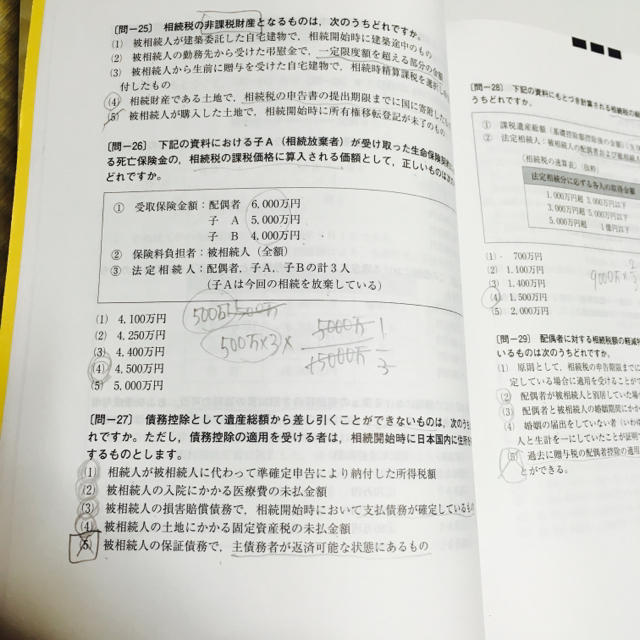 〔問－25〕 相続税の非課税財産となるものは，次のうちどれですか。
(1) 被相続人が建築委託した自宅建物で，相続開始時に建築途中のもの
(2) 被相続人の勤務先から受けた弔慰金で，一定限度額を超える部分の金額
(3) 被相続人から生前に贈与を受けた自宅建物で，相続時精算課税を選択し
付したもの
(4) 相続財産である土地で，相続税の申告書の提出期限までに国に寄附した
(5) 被相続人が購入した土地で，相続開始時に所有権移転登記が未了のもの
〔問－26〕 下記の資料における子A（相続放棄者）が受け取った生命保険契約
る死亡保険金の，相続税の課税価格に算入される価額として，正しいものは次の
どれですか。
① 受取保険金額：配偶者 6,000万円
子 A 5,000万円
子 B 4,000万円
② 保険料負担者：被相続人（全額）
③ 法定相続人：配偶者，子A，子Bの計3人
（子Aは今回の相続を放棄している）
(1) 4,100万円
(2) 4,250万円
(3) 4,400万円
(4) 4,500万円
(5) 5,000万円
500万×3×
5000万 1
15000万 3
〔問－27〕 債務控除として遺産総額から差し引くことができないものは，次のうち
れですか。ただし，債務控除の適用を受ける者は，相続開始時に日本国内に住所
するものとします。
(1) 相続人が被相続人に代わって準確定申告により納付した所得税額
(2) 被相続人の入院にかかる医療費の未払金額
(3) 被相続人の損害賠償債務で，相続開始時において支払債務が確定しているもの
(4) 被相続人の土地にかかる固定資産税の未払金額
(5) 被相続人の保証債務で，主債務者が返済可能な状態にあるもの
〔問－28〕 下記の資料にもとづき計算される相続税の総
うちどれですか。
① 課税遺産総額（基礎控除額控除後の金額）
② 法定相続人：被相続人の配偶者および被相続
〈相続税の速算表〉（抜粋）
法定相続分に応ずる各人の取得金額
1,000万円超 3,000万円以下
3,000万円超 5,000万円以下
5,000万円超 1億円以下
(1) 700万円
(2) 1,100万円
(3) 1,400万円
(4) 1,500万円
(5) 2,000万円
9000万×
〔問－29〕 配偶者に対する相続税額の軽減
いものは次のうちどれですか。
(1) 原則として，相続税の申告期限までに
定している場合に適用を受けることが
(2) 配偶者が被相続人と別居していた場
(3) 配偶者と被相続人の婚姻期間にか
(4) 婚姻の届出をしていない者（いわゆ
人と生計を一にしていたことが証明
(5) 過去に贈与税の配偶者控除の適用
とができる。